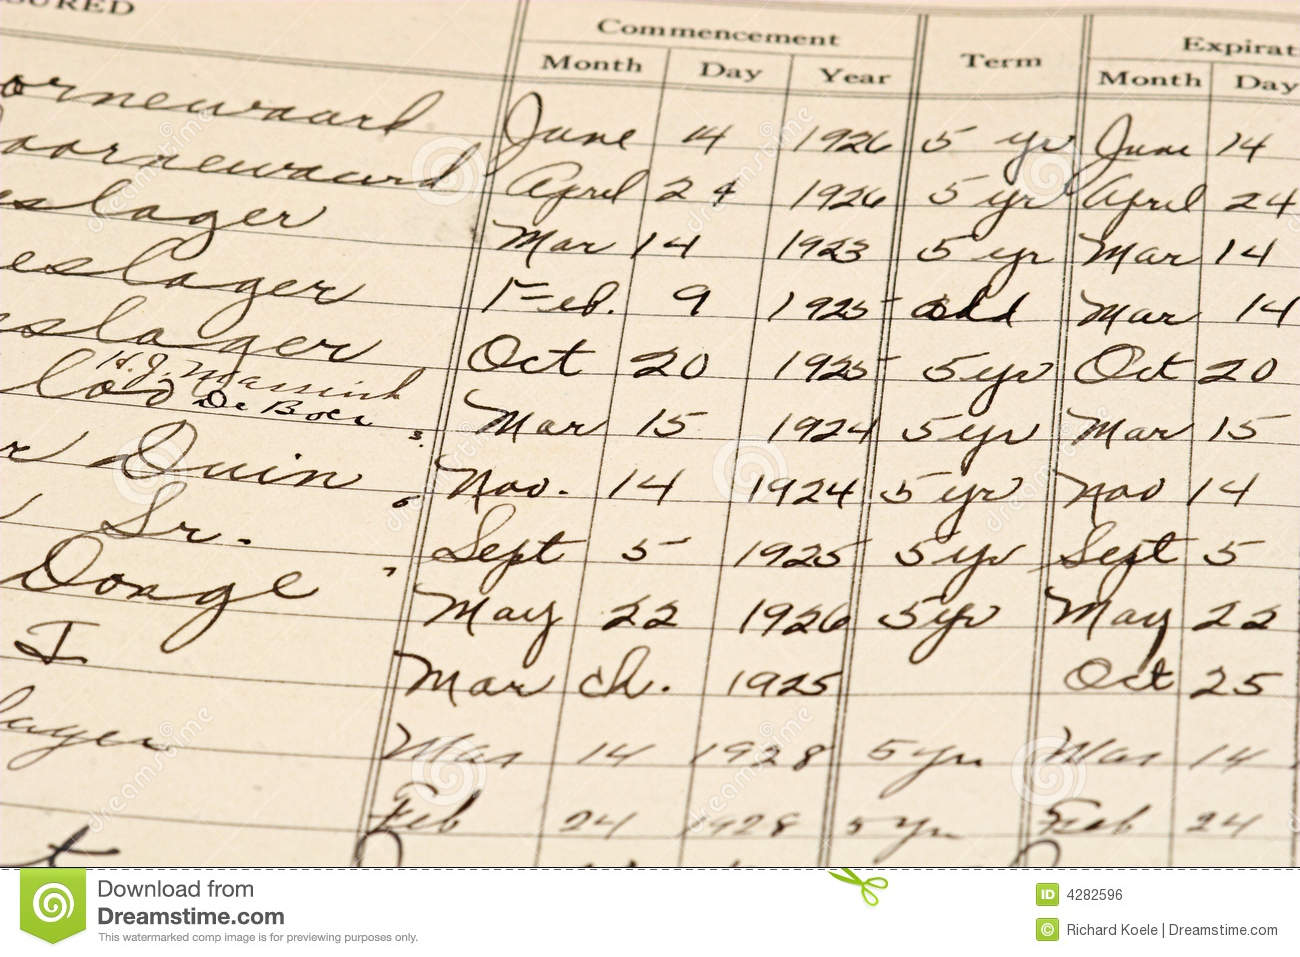 SURED Commencement Term Expirat
Month Day Year Month Day
oornewaard June 14 1926 5 yr June 14
oornewaard April 24 1926 5 yr April 24
eslager Mar 14 1923 5 yr Mar 14
eslager Feb. 9 1925 add Mar 14
eslager Oct 20 1925 5 yr Oct 20
H.J. Massink
De Boer Mar 15 1924 5 yr Mar 15
r Duin 6 Nov. 14 1924 5 yr Nov 14
Sr. Sept 5 1925 5 yr Sept 5
Donge 7 May 22 1926 5 yr May 22
I March. 1925 Oct 25
lager Mar 14 1928 5 yr Mar 14
Feb 24 1928 5 yr Feb 24
t
Download from
Dreamstime.com
This watermarked comp image is for previewing purposes only.
ID 4282596
© Richard Koele | Dreamstime.com